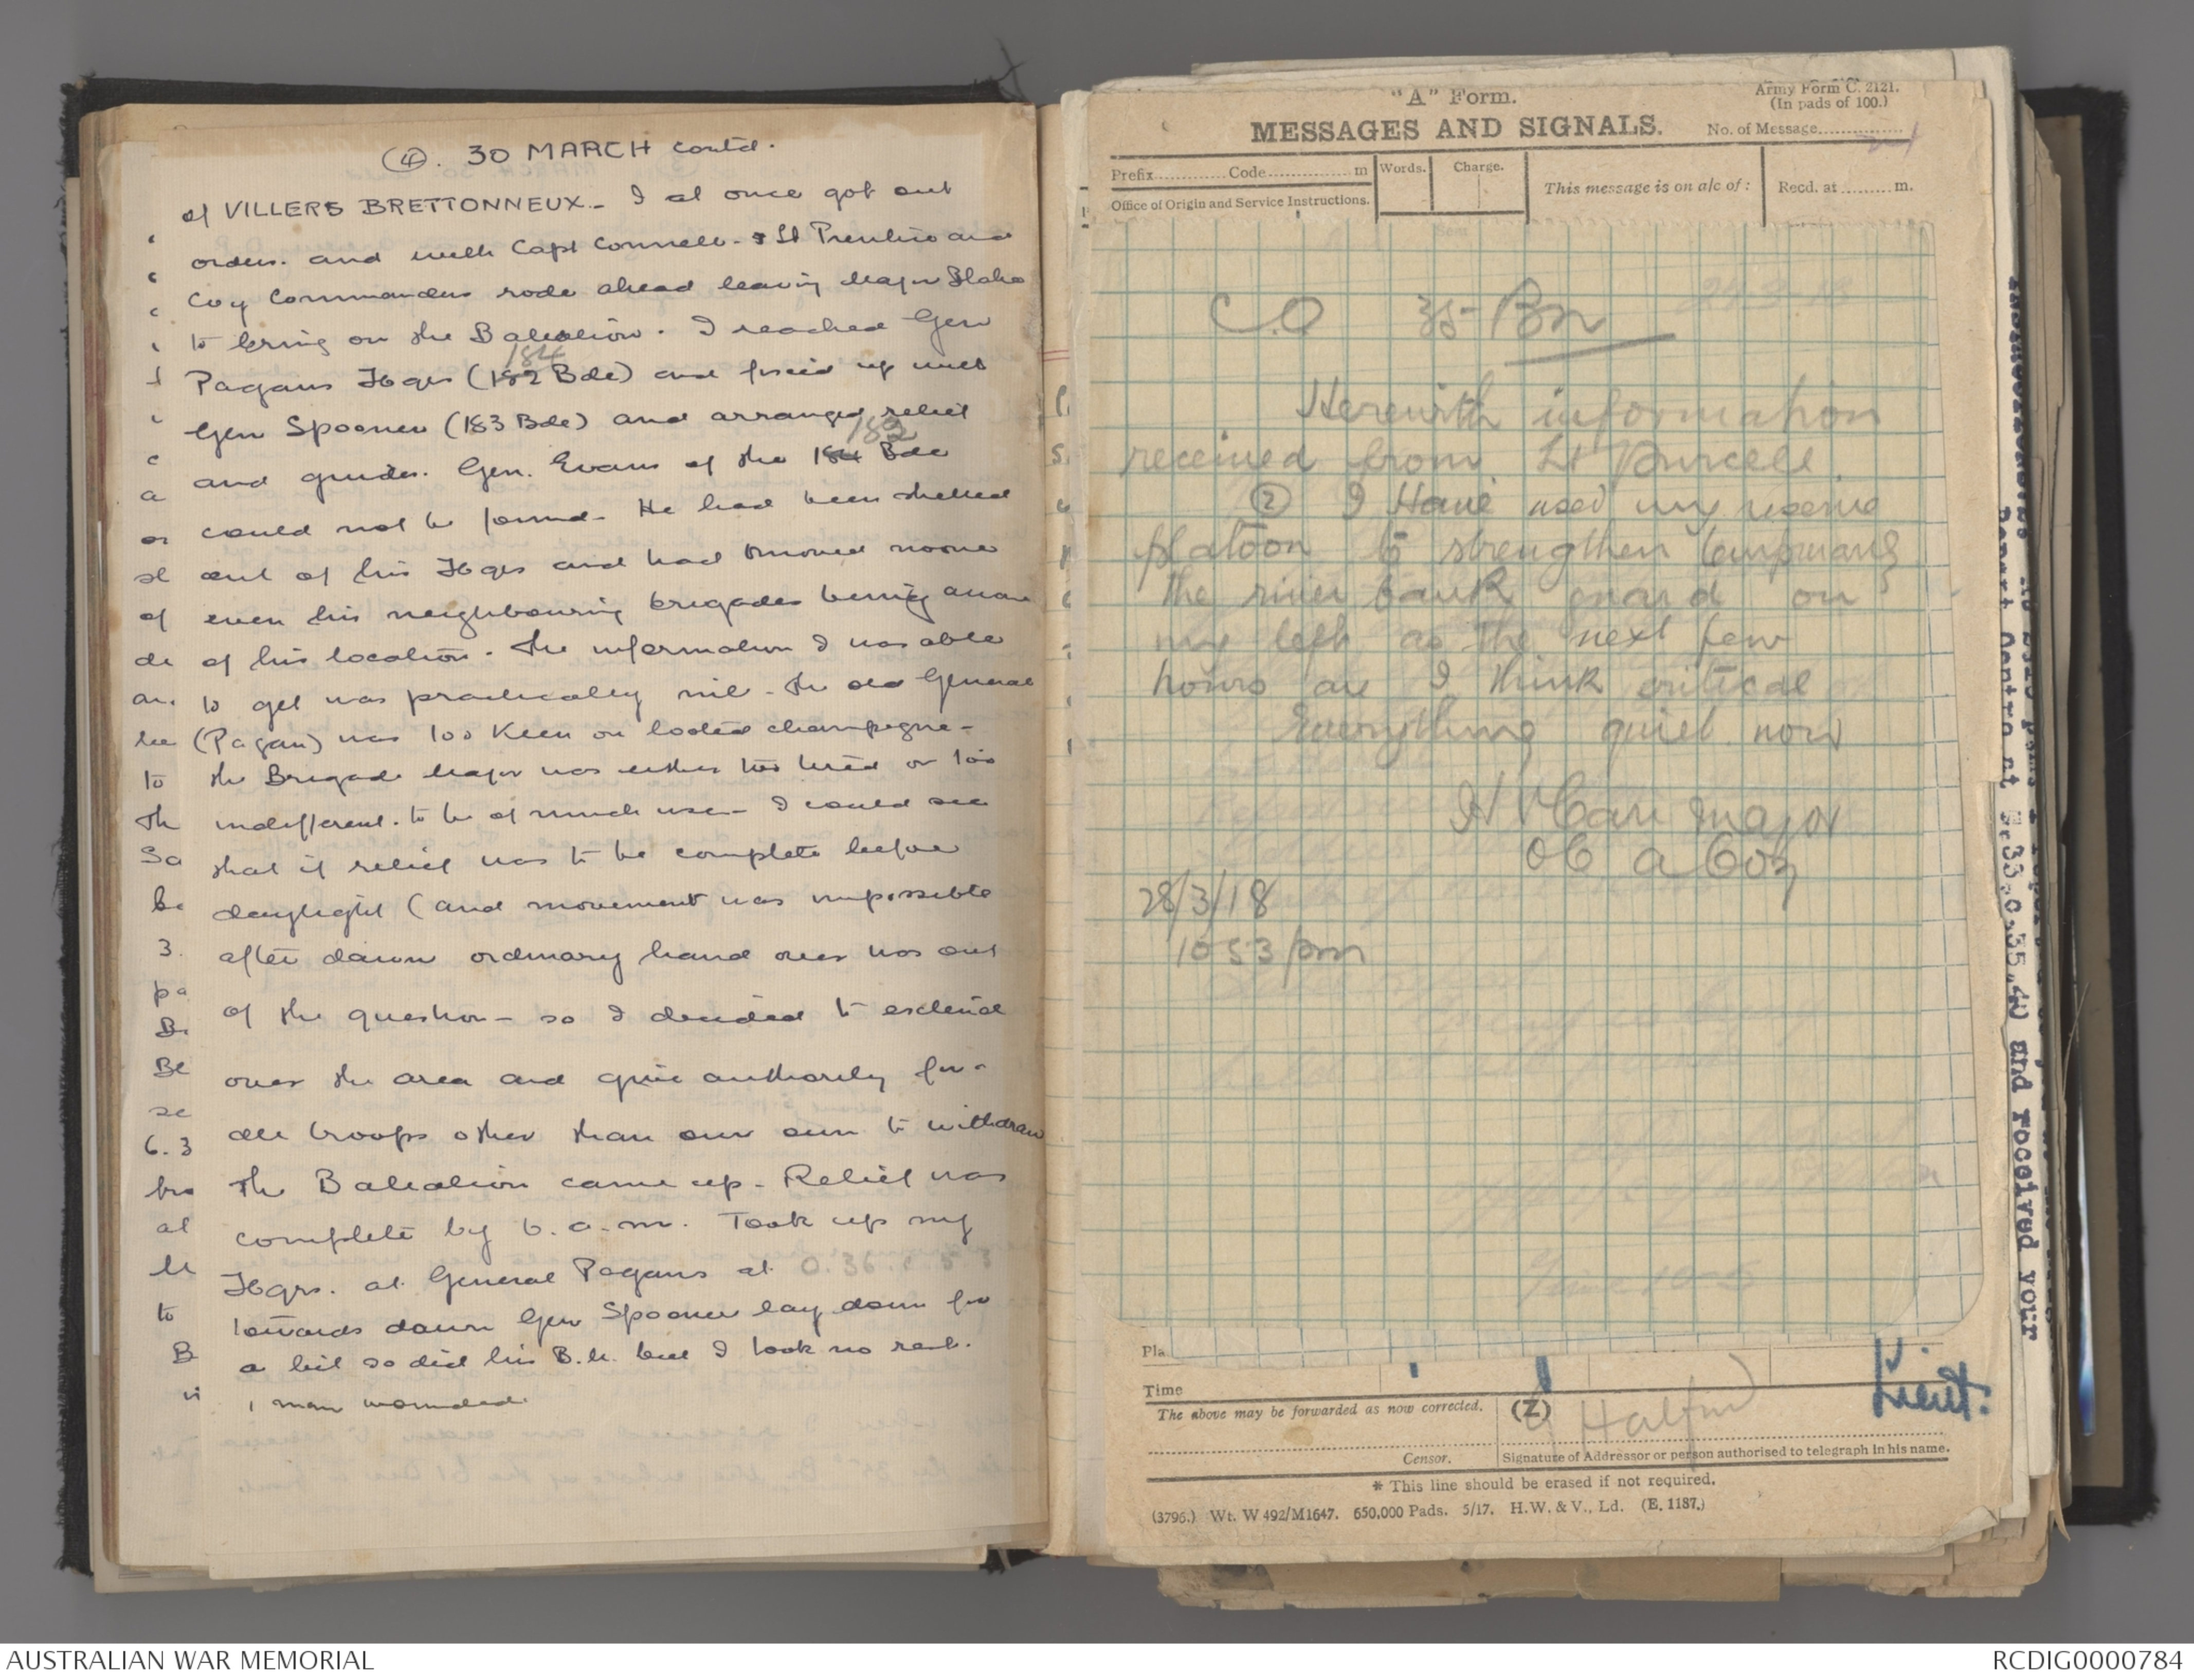 (4). 30 MARCH contd.
of VILLERS BRETTONNEUX. I at once got out
orders. and with Capt Connell & Lt Prentice and
Coy Commanders rode ahead leaving Major Blake
to bring on the Battalion. I reached Gen
184
Pagans Hqrs (182 Bde) and fixed up with
Gen Spooner (183 Bde) and arranged relief
182
and guides. Gen. Evans of the 184 Bde
could not be found. He had been shelled
out of his Hqrs and had moved noone
of even his neighbouring brigades being aware
of his location. The information I was able
to get was practically nil - the old General
(Pagan) was too keen on looted champagne -
the Brigade Major was either too tired or too
indifferent. to be of much use - I could see
that if relief was to be complete before
daylight (and movement was impossible
after dawn ordinary hand over was out
of the question - so I decided to extend
over the area and give authority for
all troops other than our own to withdraw
The Battalion came up - Relief was
complete by 6. a.m. Took up my
Hqrs. at General Pagans at O.36.c.5.3
towards dawn Gen Spooner lay down for
a bit so did his B.M. but I took no rest.
1 man wounded.
a
or
st
of
de
an
he
to
Th
So
be
3.
pa
Be
se
6.3
bro
at
to
B
"A" Form.
Army Form C. 2121.
(In pads of 100.)
MESSAGES AND SIGNALS.
No. of Message
Prefix Code m
Words.
Charge.
This message is on a/c of:
Recd. at m.
Office of Origin and Service Instructions.
Sent
C.O 35 Bn
Herewith information
received from Lt Purcell
(2) I Have used my reserve
platoon to strengthen temporarily
the river bank guard on
my left as the next few
hours are I think critical
Everything quiet now
H V Carr Major
OC A Coy
28/3/18
10 53 pm
Pla
Time
The above may be forwarded as now corrected.
(Z)
Halford
Lieut.
Censor.
Signature of Addressor or person authorised to telegraph in his name.
* This line should be erased if not required.
(3796.) Wt. W 492/M1647. 650,000 Pads. 5/17. H.W. & V., Ld. (E. 1187.)
and received your
AUSTRALIAN WAR MEMORIAL
RCDIG0000784